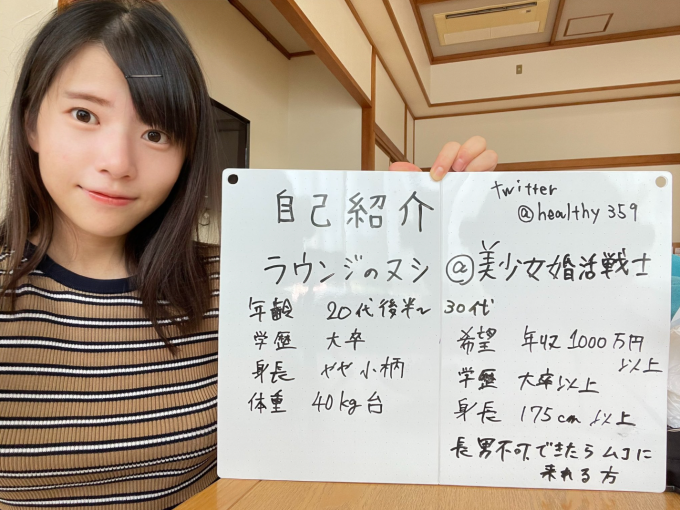 twitter
@healthy359
自己紹介
ラウンジのヌシ@美少女婚活戦士
年齢 20代後半~30代
学歴 大卒
身長 やや小柄
体重 40kg台
希望 年収1000万円
以上
学歴 大卒以上
身長 175cm以上
長男不可。できたらムコに
来れる方